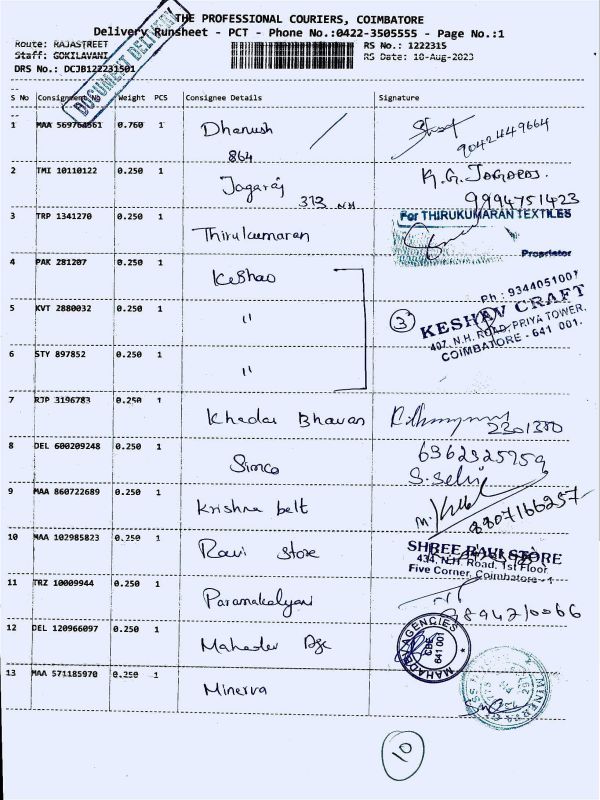 THE PROFESSIONAL COURIERS, COIMBATORE
Delivery Runsheet - PCT - Phone No.:0422-3505555 - Page No.:1
Route: RAJASTREET
RS No.: 1222315
Staff: GOKILAVANI
RS Date: 10-Aug-2023
DRS No.: DCJB122231501
DOCUMENT DELIVERY
S No Consignment No Weight PCS Consignee Details Signature
1 MAA 569764561 0.760 1 Dhanush
864
9042449664
2 TMI 10110122 0.250 1 Jagaraj
313 NH
K.G. JAGARAJ.
9994751423
3 TRP 1341270 0.250 1 Thirukumaran
For THIRUKUMARAN TEXTILES
Proprietor
4 PAK 281207 0.250 1 Keshao
5 KVT 2880032 0.250 1 "
6 STY 897852 0.250 1 "
3
Ph : 9344051007
KESHAV CRAFT
407, N.H. ROAD, PRIYA TOWER,
COIMBATORE - 641 001.
7 RJP 3196783 0.250 1 Khadar Bhavan
2301380
8 DEL 600209248 0.250 1 Simco
6362325759
S. Selvi
9 MAA 860722689 0.250 1 Krishna belt
8807166257
10 MAA 102985823 0.250 1 Ravi Store
SHREE RAVI STORE
434, N.H. Road, 1st Floor,
Five Corner, Coimbatore - 1
11 TRZ 10009944 0.250 1 Paramakalyani
9894210066
12 DEL 120966097 0.250 1 Mahadev Agc
MAHADEV AGENCIES
CBE
641 001
13 MAA 571185970 0.250 1 Minerva
MINERVA
10